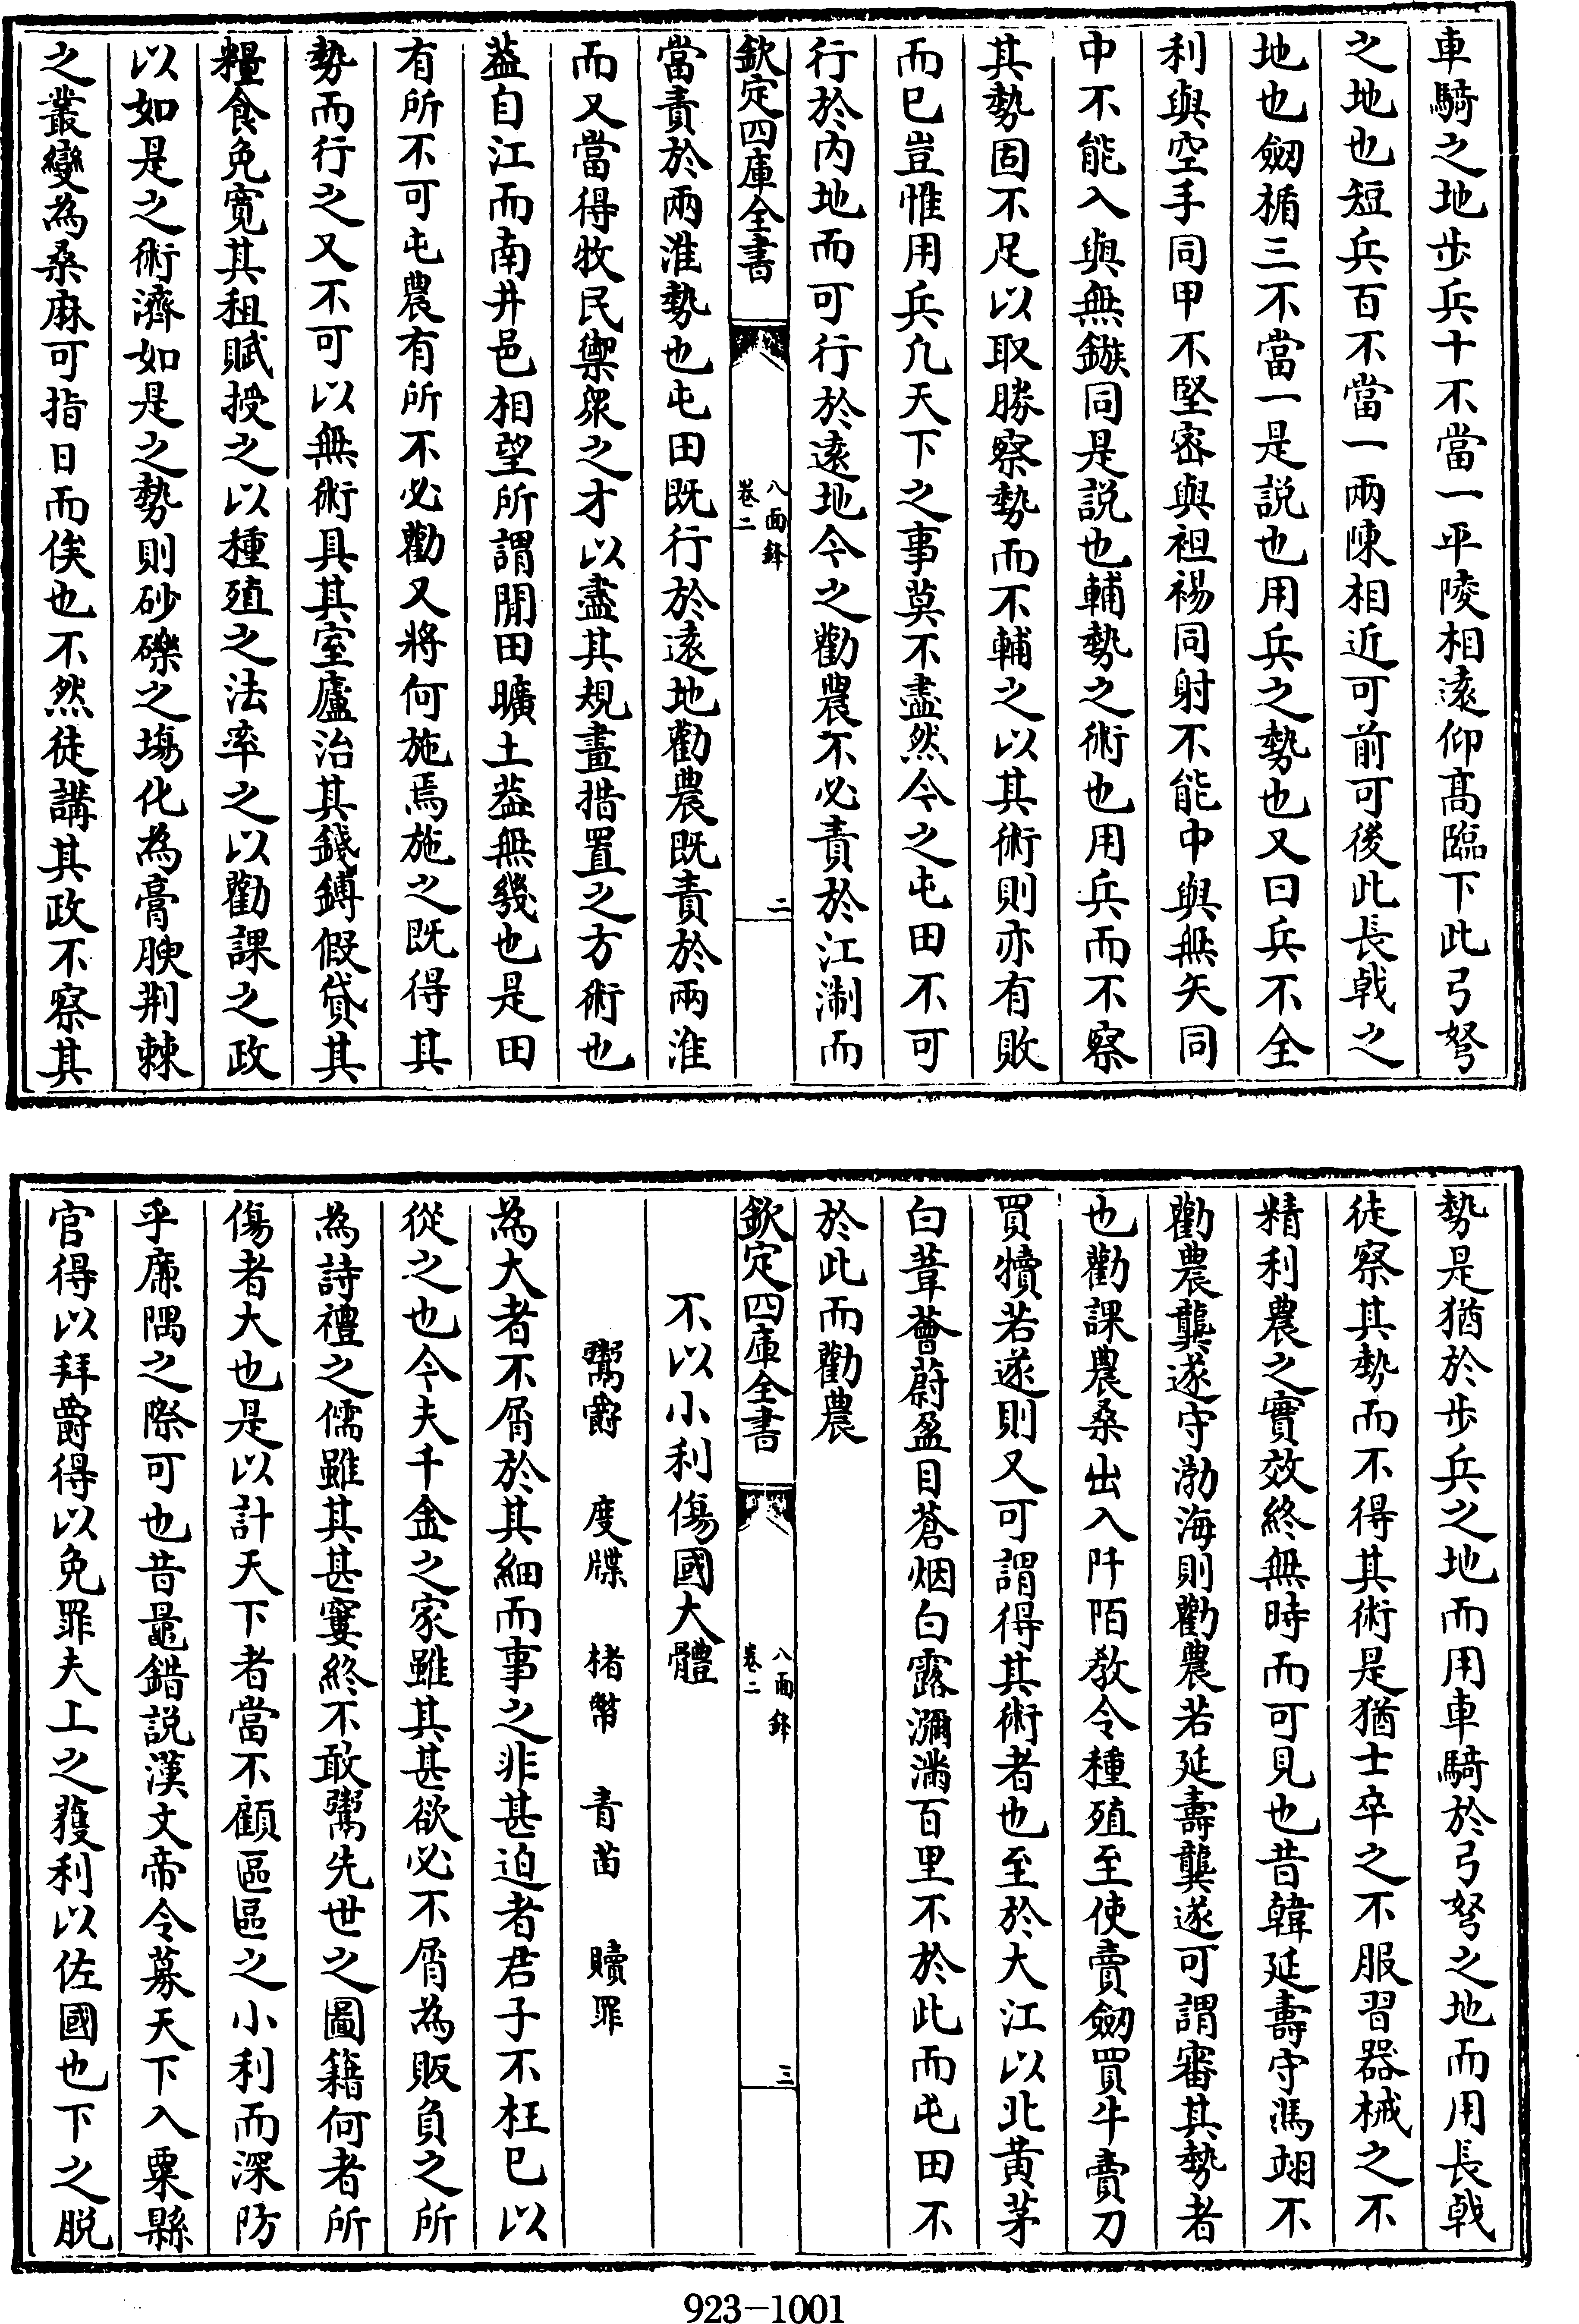 車騎之地步兵十不當一平陵相逺仰髙臨下此弓弩
之地也短兵百不當一兩陳相近可前可後此長㦸之
地也劒楯三不當一是説也用兵之勢也又曰兵不全
利與空手同甲不堅密與袒裼同射不能中與無矢同
中不能入與無鏃同是説也輔勢之術也用兵而不察
其勢固不足以取勝察勢而不輔之以其術則亦有敗
而已豈惟用兵凡天下之事莫不盡然今之屯田不可
行於內地而可行於逺地今之勸農不必責於江淛而
欽定四庫全書
八面鋒
卷二
二
當責於兩淮勢也屯田既行於逺地勸農既責於兩淮
而又當得牧民禦衆之才以盡其規畫措置之方術也
葢自江而南井邑相望所謂閒田曠土葢無幾也是田
有所不可屯農有所不必勸又將何施焉施之既得其
勢而行之又不可以無術具其室廬治其錢鎛假貸其
糧食免寛其租賦授之以種殖之法率之以勸課之政
以如是之術濟如是之勢則砂礫之塲化為膏腴荆棘
之叢變為桑麻可指日而俟也不然徒講其政不察其
勢是猶於步兵之地而用車騎於弓弩之地而用長㦸
徒察其勢而不得其術是猶士卒之不服習器械之不
精利農之實效終無時而可見也昔韓延壽守馮翊不
勸農龔遂守渤海則勸農若延壽龔遂可謂審其勢者
也勸課農桑出入阡陌教令種殖至使賣劒買牛賣刀
買犢若遂則又可謂得其術者也至於大江以北黄茅
白葦薈蔚盈目蒼烟白露瀰滿百里不於此而屯田不
於此而勸農
欽定四庫全書
八面鋒
卷二
三
不以小利傷國大體
鬻爵 度牒 楮幣 青苗 贖罪
為大者不屑於其細而事之非甚迫者君子不枉已以
從之也今夫千金之家雖其甚欲必不屑為販負之所
為詩禮之儒雖其甚窶終不敢鬻先世之圖籍何者所
傷者大也是以計天下者當不顧區區之小利而深防
乎廉隅之際可也昔鼂錯説漢文帝令募天下入粟縣
官得以拜爵得以免罪夫上之獲利以佐國也下之脱
923-1001